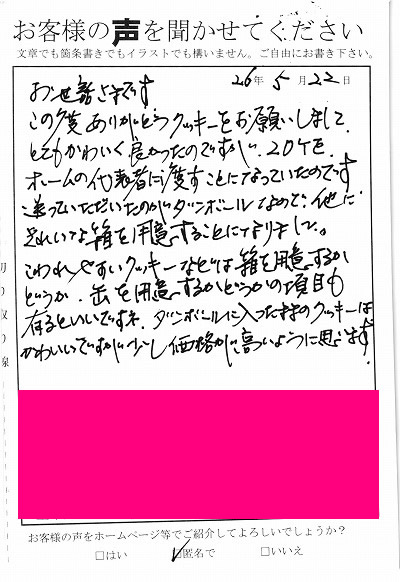 お客様の声を聞かせてください
文章でも箇条書きでもイラストでも構いません。ご自由にお書き下さい。
26年5月22日
お世話さまです
この度ありがとうクッキーをお願いしまして、
とてもかわいく良かったのですが、20ケを、
ホームの代表者に渡すことになっていたのです
送っていただいたのがダンボールなので、他に
きれいな箱を用意することになりました。
こわれやすいクッキーなどは箱を用意するか
どうか、缶を用意するかどうかの項目も
有るといいですネ、ダンボールに入ったままのクッキーは
かわいいですが少し価格が高いように思います。
切り取り線
お客様の声をホームページ等でご紹介してよろしいでしょうか?
□はい ☑匿名で □いいえ